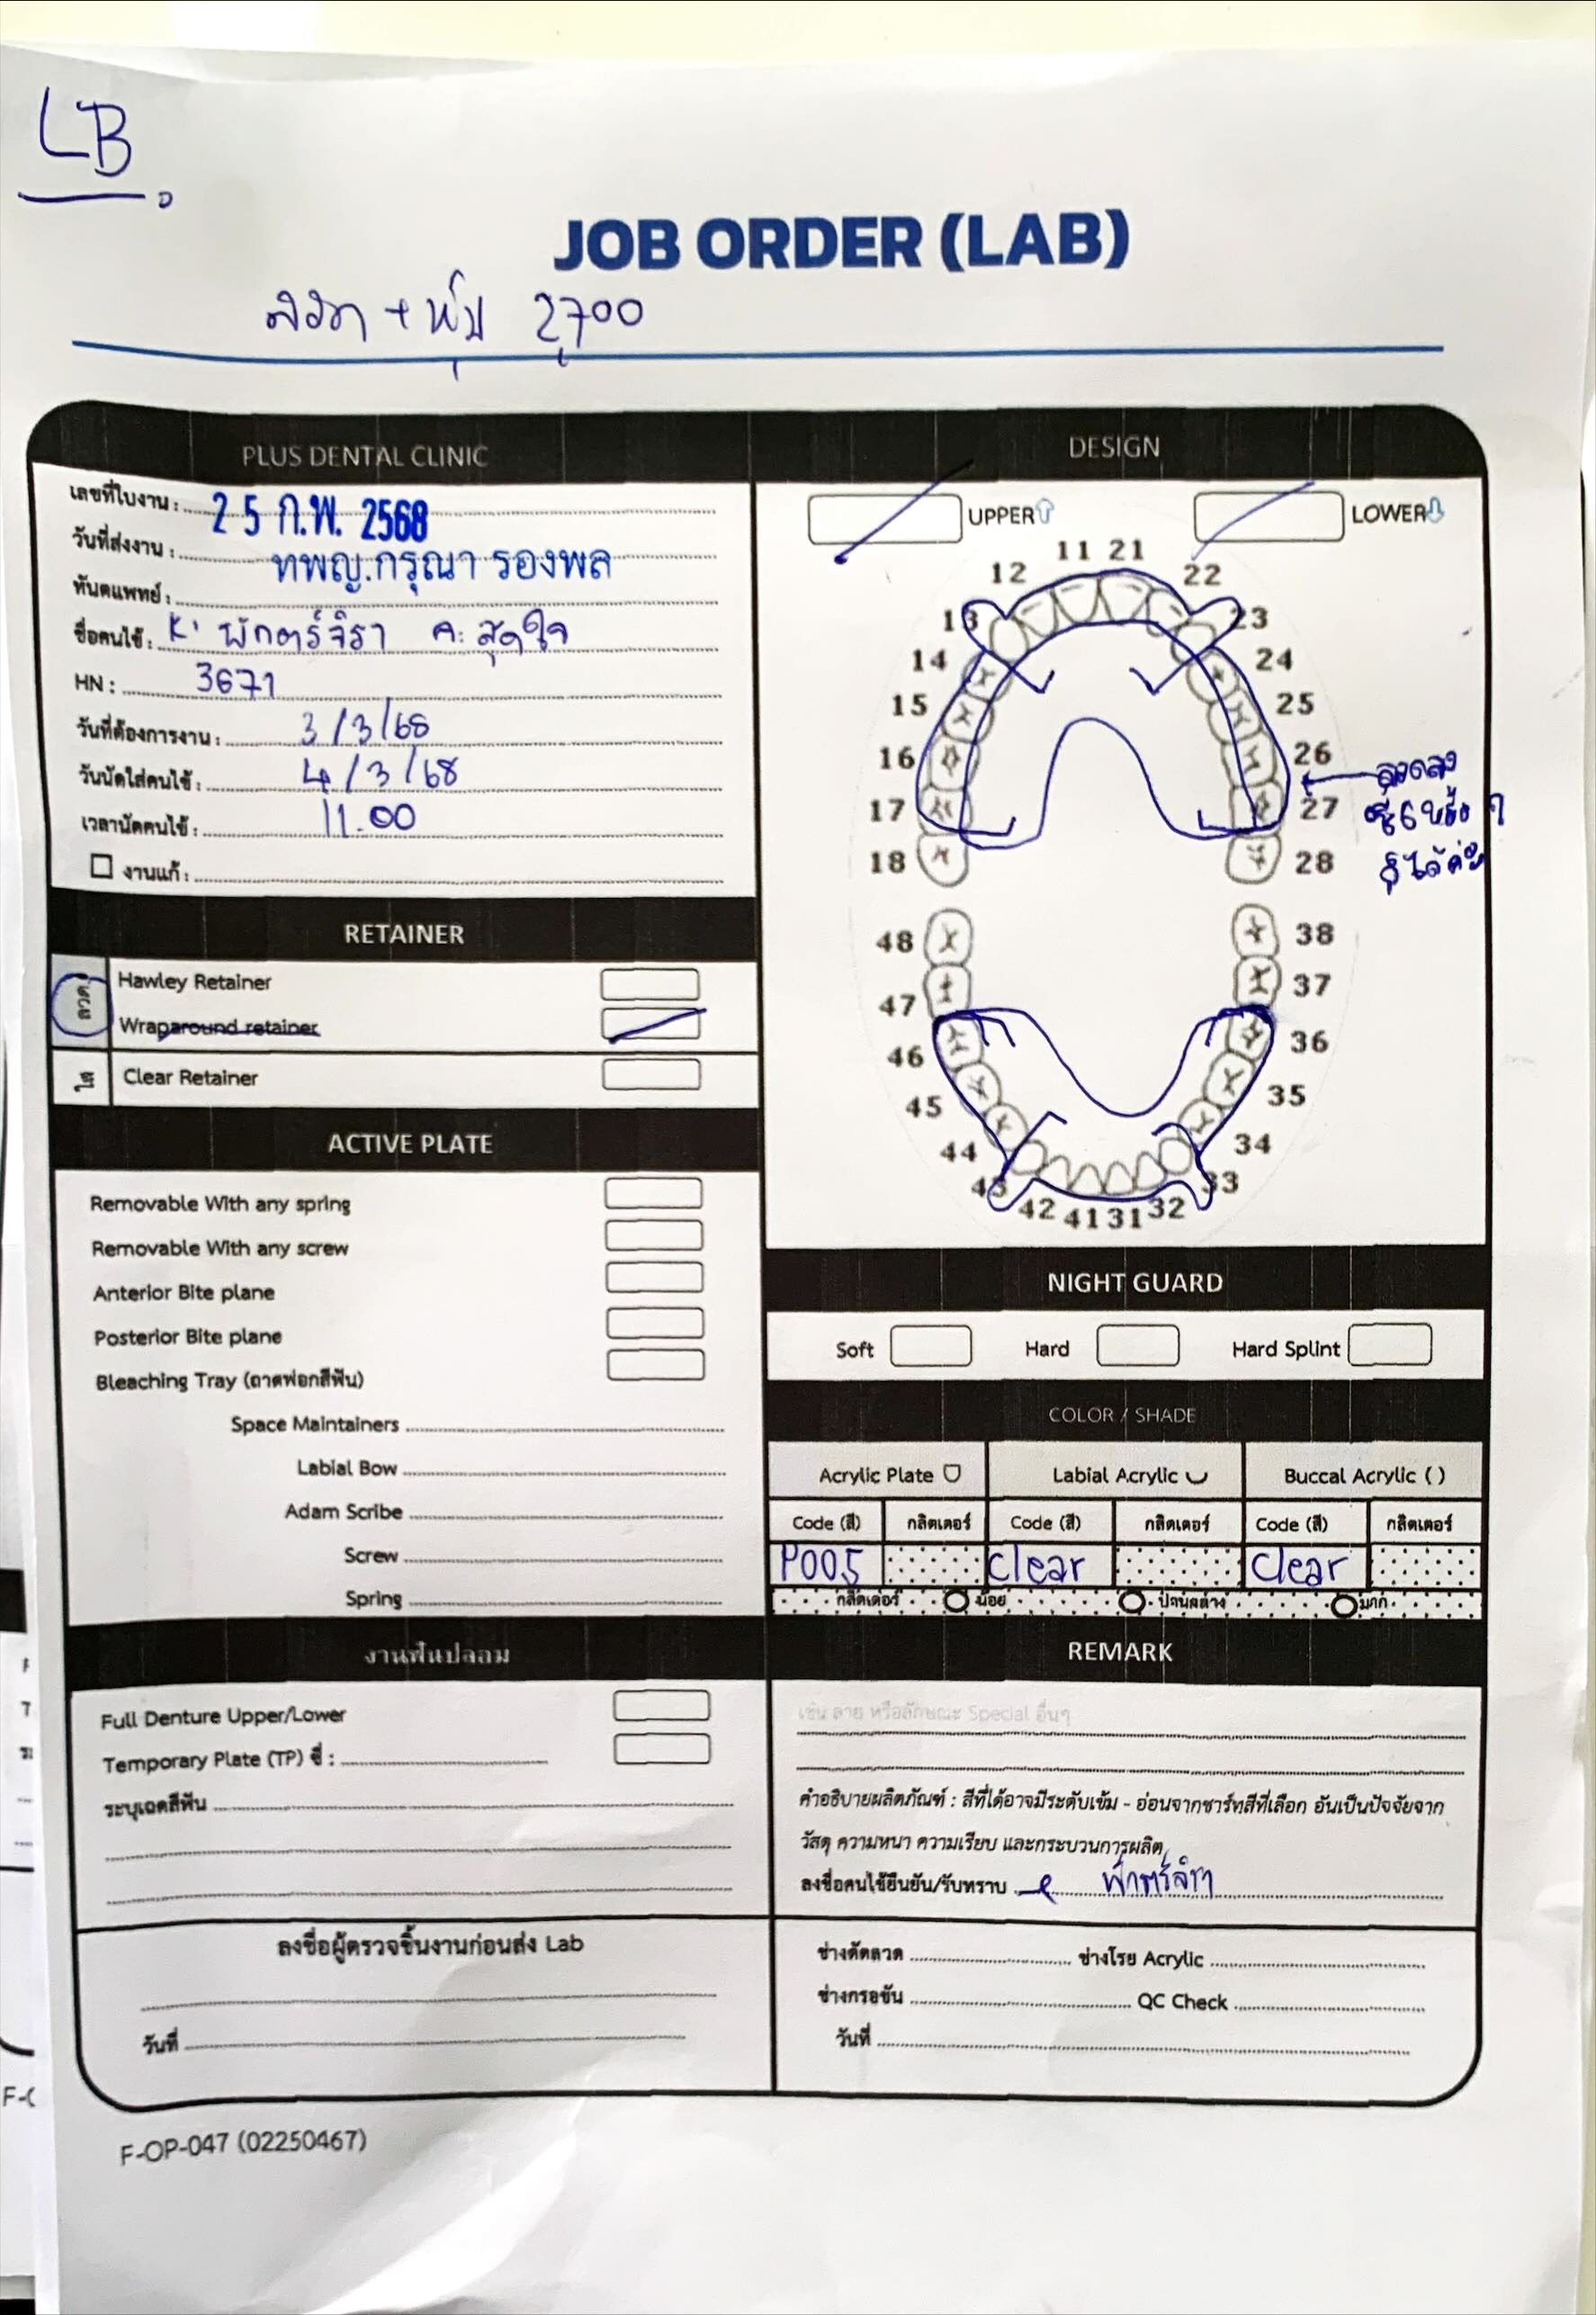 LB
JOB ORDER (LAB)
ลวด + หุ้ม 2,700
PLUS DENTAL CLINIC
เลขที่ใบงาน :
25 ก.พ. 2568
วันที่ส่งงาน :
ทพญ.กรุณา รองพล
ทันตแพทย์ :
ชื่อคนไข้ : K' พักตร์จิรา สุดใจ
HN : 3671
วันที่ต้องการงาน : 3/3/68
วันนัดใส่คนไข้ : 4/3/68
เวลานัดคนไข้ : 11.00
งานแก้ :
RETAINER
ลวด
Hawley Retainer
Wraparound retainer
ใส
Clear Retainer
ACTIVE PLATE
Removable With any spring
Removable With any screw
Anterior Bite plane
Posterior Bite plane
Bleaching Tray (ถาดฟอกสีฟัน)
Space Maintainers
Labial Bow
Adam Scribe
Screw
Spring
งานฟันปลอม
Full Denture Upper/Lower
Temporary Plate (TP) ซี่ :
ระบุเฉดสีฟัน
ลงชื่อผู้ตรวจชิ้นงานก่อนส่ง Lab
วันที่
DESIGN
UPPER LOWER
11 21
12 22
13 23
14 24
15 25
16 26
17 27
18 28
ลวดลง
ซี่ 6 หรือ 7
ก็ได้ค่ะ
48 38
47 37
46 36
45 35
44 34
43 33
42 41 31 32
NIGHT GUARD
Soft Hard Hard Splint
COLOR / SHADE
Acrylic Plate Labial Acrylic Buccal Acrylic ( )
Code (สี) กลิตเตอร์ Code (สี) กลิตเตอร์ Code (สี) กลิตเตอร์
P005 Clear Clear
กลิตเตอร์ น้อย ปานกลาง มาก
REMARK
เช่น ลาย หรือลักษณะ Special อื่นๆ
คำอธิบายผลิตภัณฑ์ : สีที่ได้อาจมีระดับเข้ม - อ่อนจากชาร์ทสีที่เลือก อันเป็นปัจจัยจาก
วัสดุ ความหนา ความเรียบ และกระบวนการผลิต
ลงชื่อคนไข้ยืนยัน/รับทราบ พักตร์จิรา
ช่างดัดลวด ช่างโรย Acrylic
ช่างกรอขัน QC Check
วันที่
F-OP-047 (02250467)